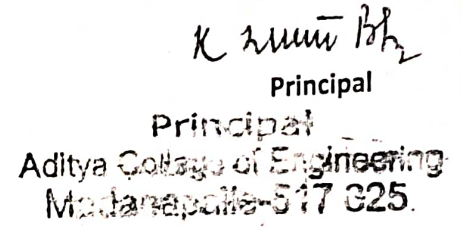 Principal
Principal
Aditya College of Engineering
Madanapalle-517 325.